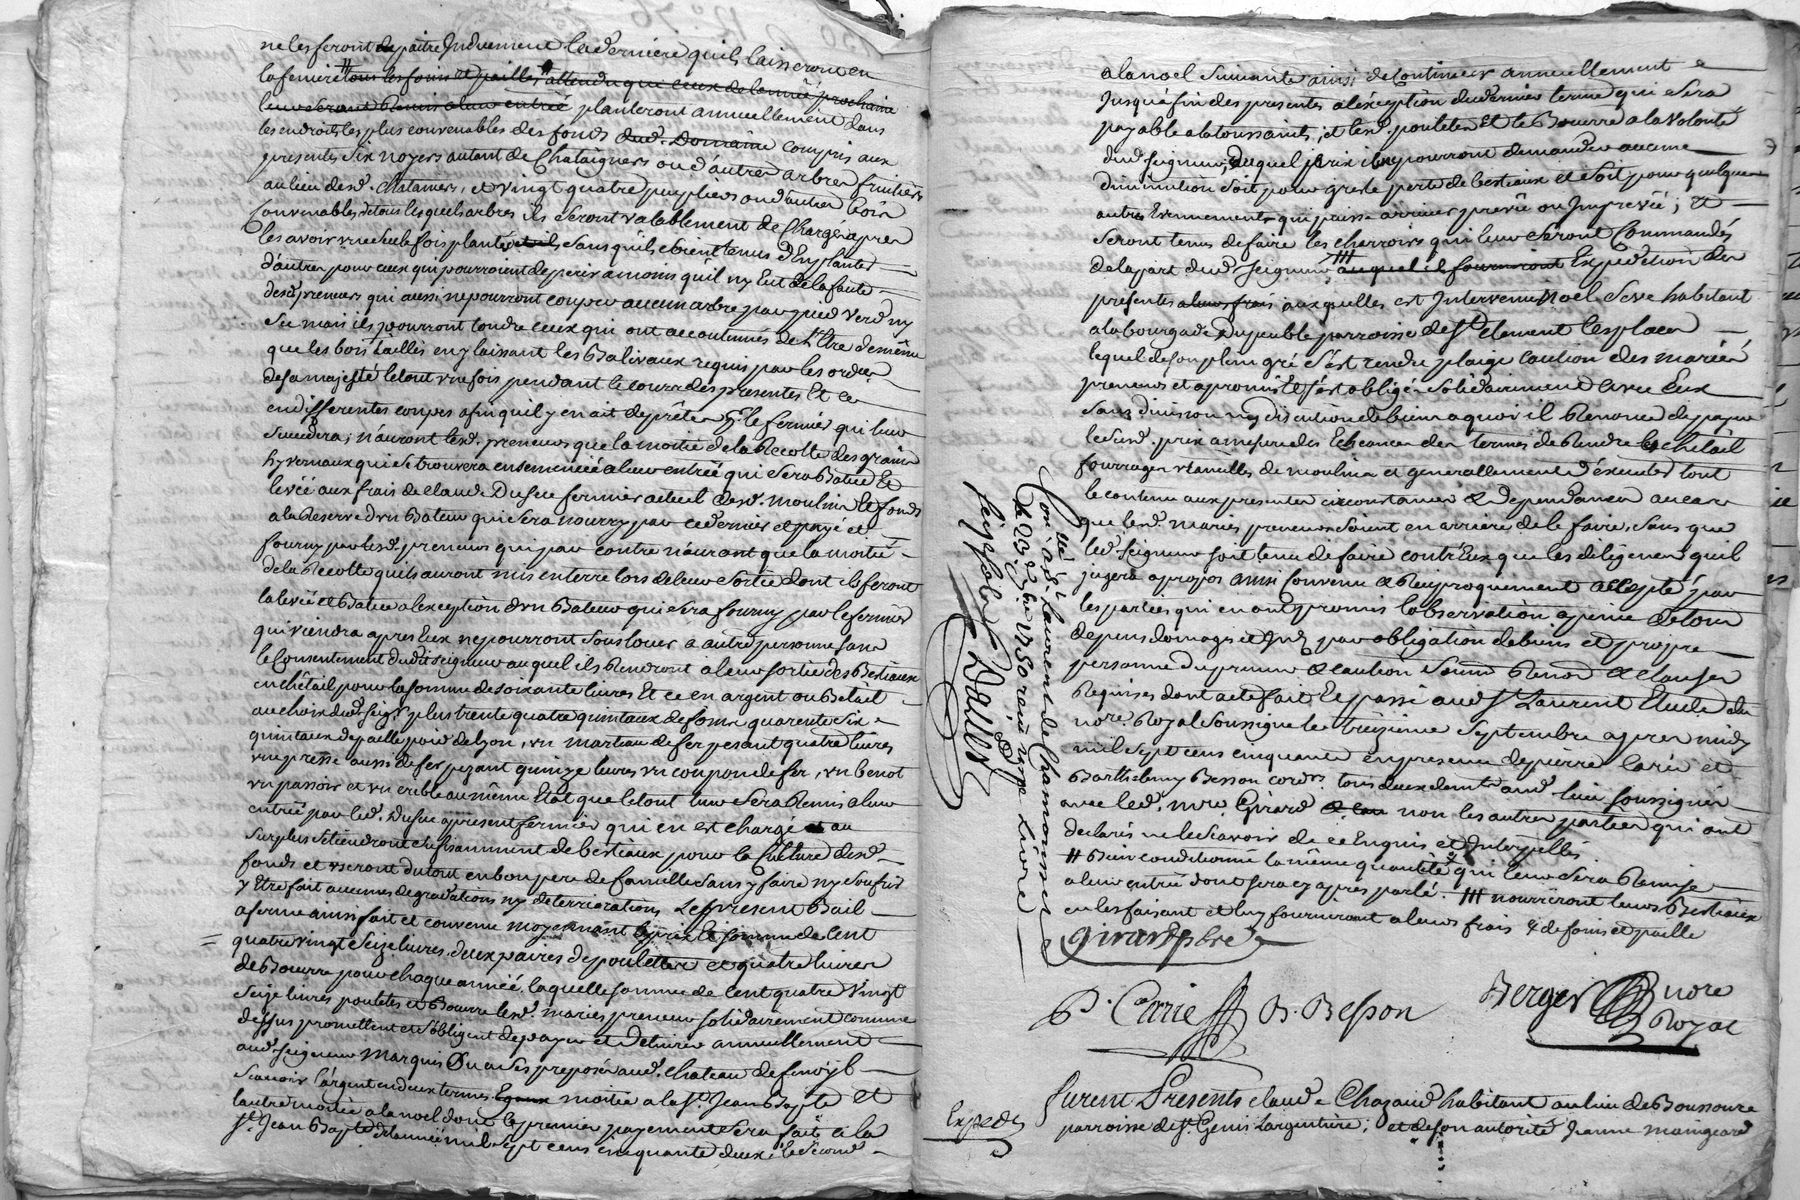 ne les feront depaitre Induement la derniere quils laisseront en
la feniere # tous les foins et pailles attendu que ceux de lannée prochaine
leur seront Remis a leur entrée planteront annuellement dans
les endroits les plus convenables des fonds dud. Domaine compris aux
presentes six noyers autant de Chataigners ou d'autres arbres fruitiers
au lieu desd. chataniers, et vingt quatre peupliers ou d'autres bois
Convenables de tous lesquels arbres ils seront valablement de Charge apres
les avoir une seule fois planté et ils sans quils soient tenus d'En planter
d'autres pour ceux qui pourroient deperir a moins qu'il ny Eut de la faute
desd. preneurs qui aussi ne pourront couper aucun arbre par pied verd ny
Sec mais ils pourront tondre ceux qui ont accoutumés de l'Etre de même
que les bois taillis en y laissant les Balivaux requis par les ordres
de sa majesté le tout une fois pendant le cours des presentes Et ce
en differentes coupes afin quil y en ait de prêtes p. le fermier qui leur
succedera; n'auront lesd. preneurs que la moitié de la Recolte des grains
hyvernaux qui se trouvera ensemencée a leur entrée qui sera Batue Et
levée aux frais de claude Dufue fermier actuel desd. moulin et fonds
a la Reserve d'un Bateur qui sera nourry par ce dernier et payé et
fourny par lesd. preneurs qui par contre n'auront que la moitié
de la Recolte quils auront mis en terre lors de leur sortie dont ils feront
la levée et Batue a lexception d'un Bateur qui sera fourny par le fermier
qui viendra apres Eux ne pourront sous louer a autre personne sans
le Consentement dudit seigneur auquel ils Rendront a leur sortie des Bestiaux
en chétail pour la somme de soixante livres Et ce en argent ou Bétail
au choix dud. seigr plus trente quatre quintaux de foins quarente six
quintaux de paille poid de lyon, un marteau de fer pesant quatre livres
une presse aussi de fer pezant quinze livres un coupon de fer, un benot
un passoir et un crible au même Etat que le tout leur sera Remis a leur
entrée par led. Dufue apresent fermier qui en est chargé et au
surplus tiendront suffisamment de bestiaux pour la Culture desd.
fonds et useront du tout en bon pere de famille sans y faire ny soufrir
y Etre fait aucunes degradations ny deterriorations Le present Bail
a ferme ainsi fait et convenu moyennant le prix et somme de Cent
quatre vingt seize livres, deux paires de poulettes et quatre livres
de Beurre pour chaque année, laquelle somme de Cent quatre Vingt
seize livres poulets et Beurre lesd. mariés preneurs solidairement comme
dessus promettent et s'obligent de payer et Delivrer annuellement
aud. seigneur Marquis Ou a ses preposés aud. chateau de
Scavoir l'argent en deux termes Egaux moitié a la St. Jean Bapte et
l'autre moitié a la noel dont le premier payement sera fait a la
St. Jean Bapte de lannée mil sept cens cinquante deux; le second
a la noel suivante ainsi de Continuer annuellement
Jusqu'a fin des presentes a lexception du dernier terme qui sera
payable a la toussaints, et lesd. poulets et le Beurre a la volonté
dud. seigneur, Duquel prix ils ne pourront demander aucune
diminution soit pour gresle perte de bestiaux et soit pour quelques
autres Evennements qui puisse arriver prevû ou Imprevû; Et
seront tenus de faire les charrois qui leur seront Commandés
de la part dud. seigneur ### auquel ils fourniront Expedition des
presentes a leurs frais auxquelles est Intervenu Noel Seve habitant
a la bourgade Du peuble parroisse de St. Clement les places
lequel de son plein gré s'est rendu plaige caution des mariés
preneurs et a promis et s'est obligé solidairement avec Eux
sans division ny discution de biens a quoy il Renonce de payer
le susd. prix a mesure des Echeances des termes de Rendre les chétail
fourrages utancilles de moulin et generallement d'executer tout
le contenu aux presentes circonstances & dependances au cas
que lesd. mariés preneurs soient en arriere de le faire, sans que
led. seigneur soit tenu de faire contr'Eux que les diligences quil
jugera a propos ainsi convenu & Reciproquement accepté par
les parties qui en ont promis l'observation a peine de tous
depens domages et Int. par obligation de biens et propre
personne du preneur & caution soumis Renon & clauses
Requises dont acte fait Et passé aud. St. Laurent Etude du
nore. Royal soussigné le treizieme septembre apres midy
mil sept cens cinquante en presence de pierre Carrié et
Barthelemy Besson cordrs. tous deux demts aud. lieu soussignés
avec led. mre. Girard & lau non les autres parties qui ont
declarés ne le sçavoir de ce Enquis et Interpellés
# Bien conditionné la même quantité qui leur sera Remise
a leur entrée dont sera cy apres parlé. ### nourriront leurs Bestiaux
en les faisant et luy fourniront a leurs frais & de foins et paille
Con.llé à St. Laurent de Chamousset
le 23. 7bre 1750 reçu
livre
Daules
Girard pbre
P. Carrie B. Besson Berger nore
Royal
Exped.
furent Presents claude Chazaud habitant au lieu de Boussoure
parroisse de St. Genis Largentiere; et de son autorité Jeanne maingeard